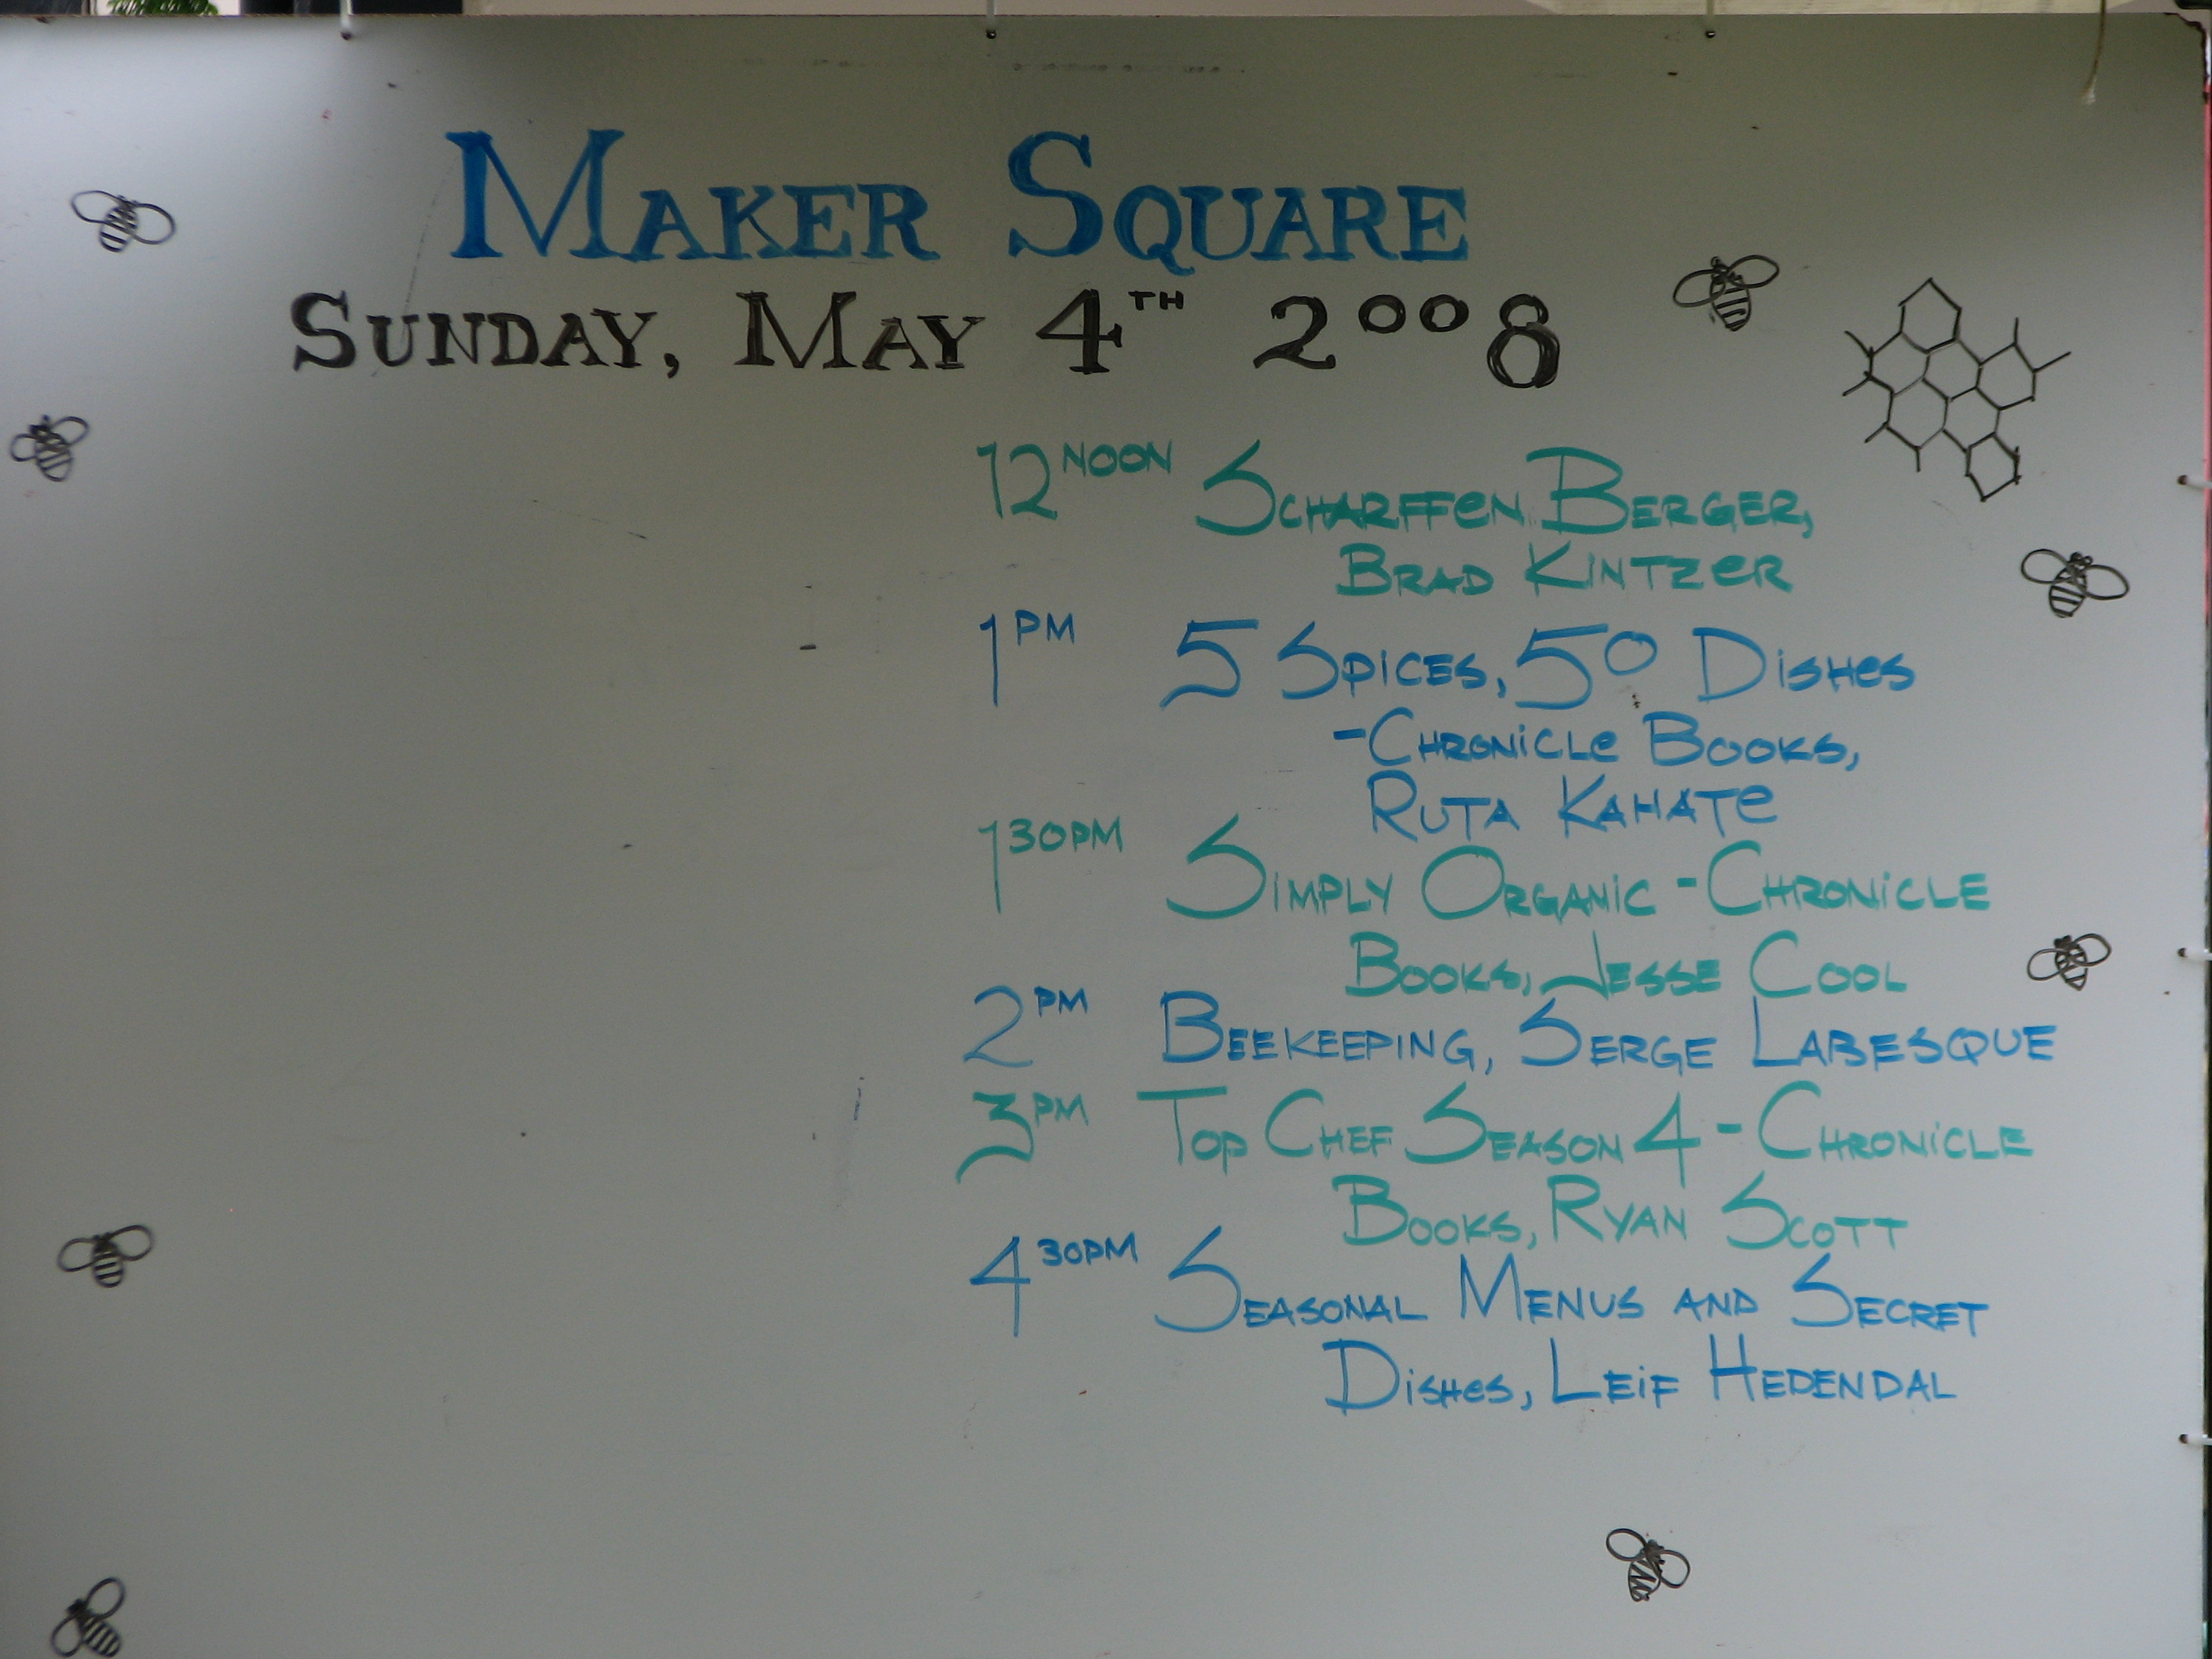 MAKER SQUARE
SUNDAY, MAY 4TH 2008
12 NOON SCHARFFEN BERGER,
BRAD KINTZER
1 PM 5 SPICES, 50 DISHES
-CHRONICLE BOOKS,
RUTA KAHATE
1 30PM SIMPLY ORGANIC - CHRONICLE
BOOKS, JESSE COOL
2 PM BEEKEEPING, SERGE LABESQUE
3 PM TOP CHEF SEASON 4 - CHRONICLE
BOOKS, RYAN SCOTT
4 30PM SEASONAL MENUS AND SECRET
DISHES, LEIF HEDENDAL